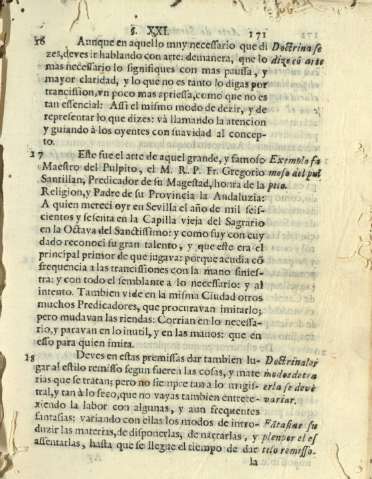 §. XXI. 171
16 Aunque en aquello muy necessario que di
zes, deves ir hablando con arte: demanera, que lo
mas necessario lo signifiques con mas pausa, y
mayor claridad, y lo que no es tanto lo digas por
trancission, vn poco mas apriessa, como que no es
tan essencial: Assi el mismo modo de dezir, y de
representar lo que dizes: và llamando la atencion
y guiando à los oyentes con suavidad al concep-
to.
Doctrina se
dize cõ arte
17 Este fue el arte de aquel grande, y famoso
Maestro del Pulpito, el M. R. P. Fr. Gregorio
Santillan, Predicador de su Magestad, honra de la
Religion, y Padre de su Provincia la Andaluzia:
A quien mereci oyr en Sevilla el año de mil seis-
cientos y sesenta en la Capilla vieja del Sagrario
en la Octava del Sanctissimo: y como fuy con cuy
dado reconoci su gran talento, y que este era el
principal primor de que jugava: porque acudia cõ
frequencia a las trancissiones con la mano sinies-
tra: y con todo el semblante a lo necessario: y al
intento. Tambien vide en la misma Ciudad otros
muchos Predicadores, que procuravan imitarlo;
pero mudavan las riendas: Corrian en lo necessa-
rio, y paravan en lo inutil, y en las manos: que en
esso para quien imita.
Exemplo fa
moso del pul
pito.
18 Deves en estas premissas dar tambien lu-
gar al estilo remisso segun fueren las cosas, y mate
rias que se tratan; pero no siempre tan a lo magis-
tral, y tan à lo seco, que no vayas tambien entrete-
xiendo la labor con algunas, y aun frequentes
fantasias: variando con ellas los modos de intro-
duzir las materias, de disponerlas, de narrarlas, y
assentarlas, hasta que se llegue el tiempo de dar
la
Doctrinal or
modos de tra
erla se deve
variar.
Fatasias su
plen por el es
tilo remisso.